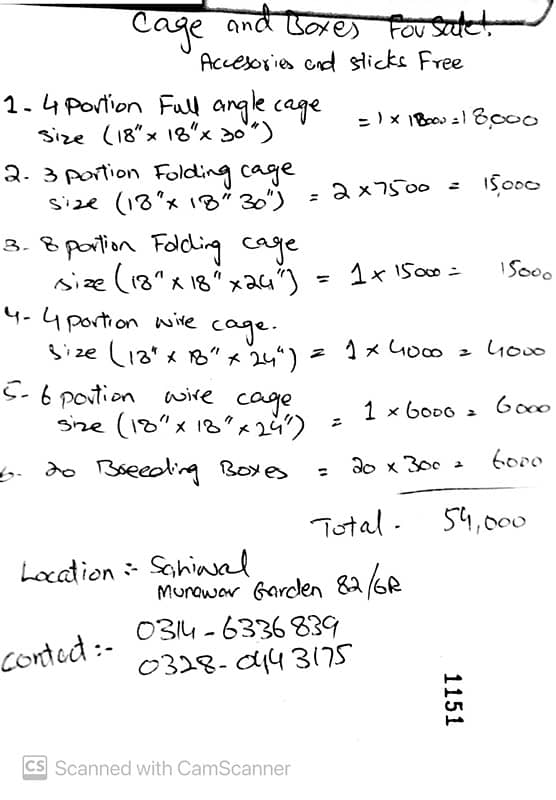 Cage and Boxes For Sale!.
Accesories and sticks Free
1- 4 Portion Full angle cage
size (18"x 18"x 30") = 1 x 18000 = 18,000
2. 3 portion Folding cage
size (18"x 18" 30") = 2 x 7500 = 15,000
3- 8 portion Folding cage
size (18" x 18" x 24") = 1 x 15000 = 15000
4- 4 portion wire cage.
size (18" x 18" x 24") = 1 x 4000 = 4000
5- 6 portion wire cage
size (18" x 18" x 24") = 1 x 6000 = 6000
6. 20 Breeding Boxes = 20 x 300 = 6000
Total - 54,000
Location :- Sahiwal
Munawar Garden 82/6R
contact :- 0314-6336839
0328-0443175
1151
CS Scanned with CamScanner